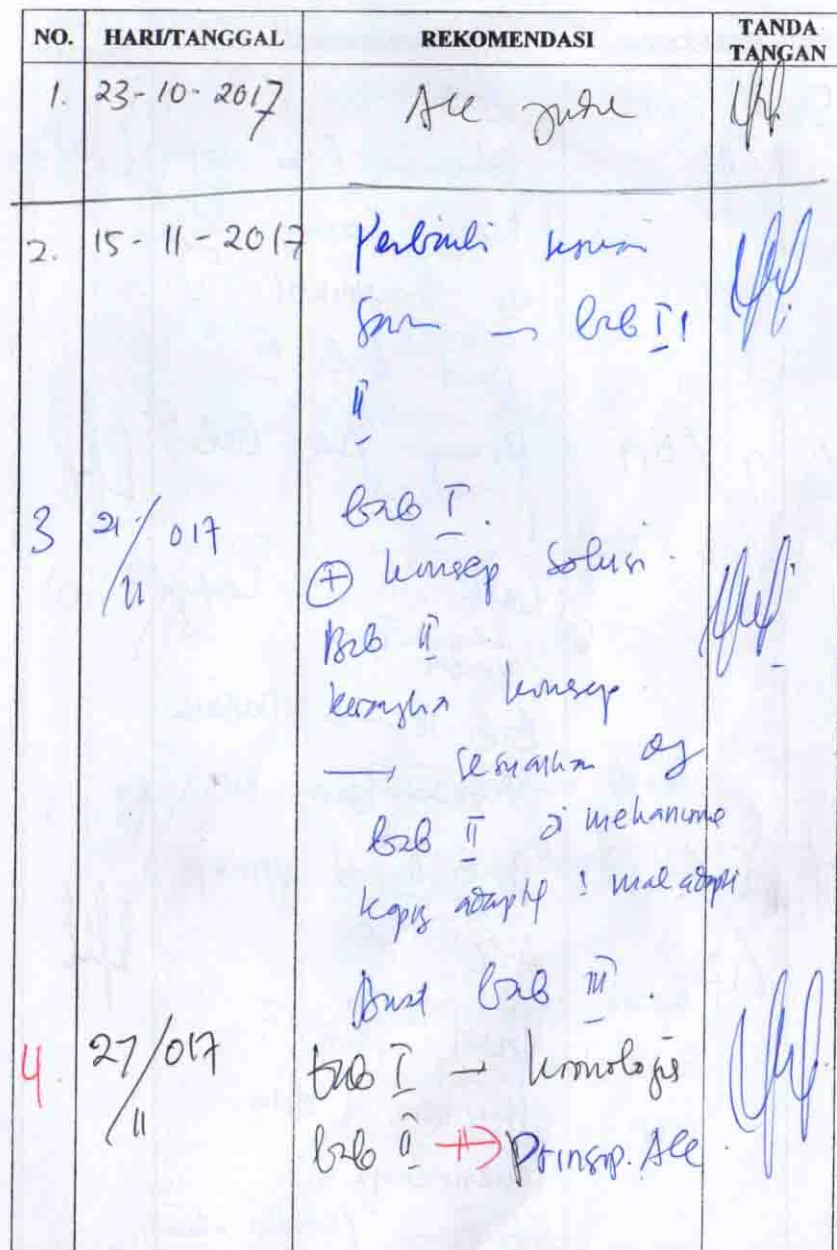 NO. HARI/TANGGAL REKOMENDASI TANDA TANGAN
1. 23-10-2017 Acc judul
2. 15-11-2017 Perbaiki sesuai
saran → bab I!
II
3 21/11 017 bab I.
+ konsep solusi
Bab II
kerangka konsep
→ sesuaikan dg
bab II
koping adaptif ! mal adaptif
Buat bab III.
4 27/11 017 bab I → kronologis
bab II → Prinsip. Acc